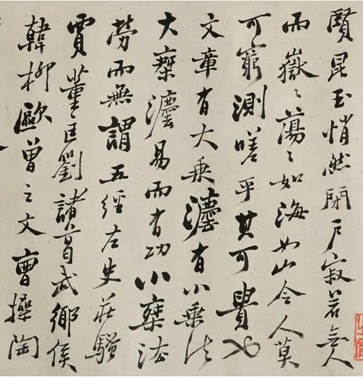 賢昆玉悄然閉戶寂若無人
而嶽〻蕩〻如海如山令人莫
可窮測嗟乎其可覺也
文章有大乘灋有小乘法
大椉灋易而有功小椉法
勞而無謂五經左史莊騷
賈董匡劉諸葛武鄉侯
韓柳歐曾之文曹操陶